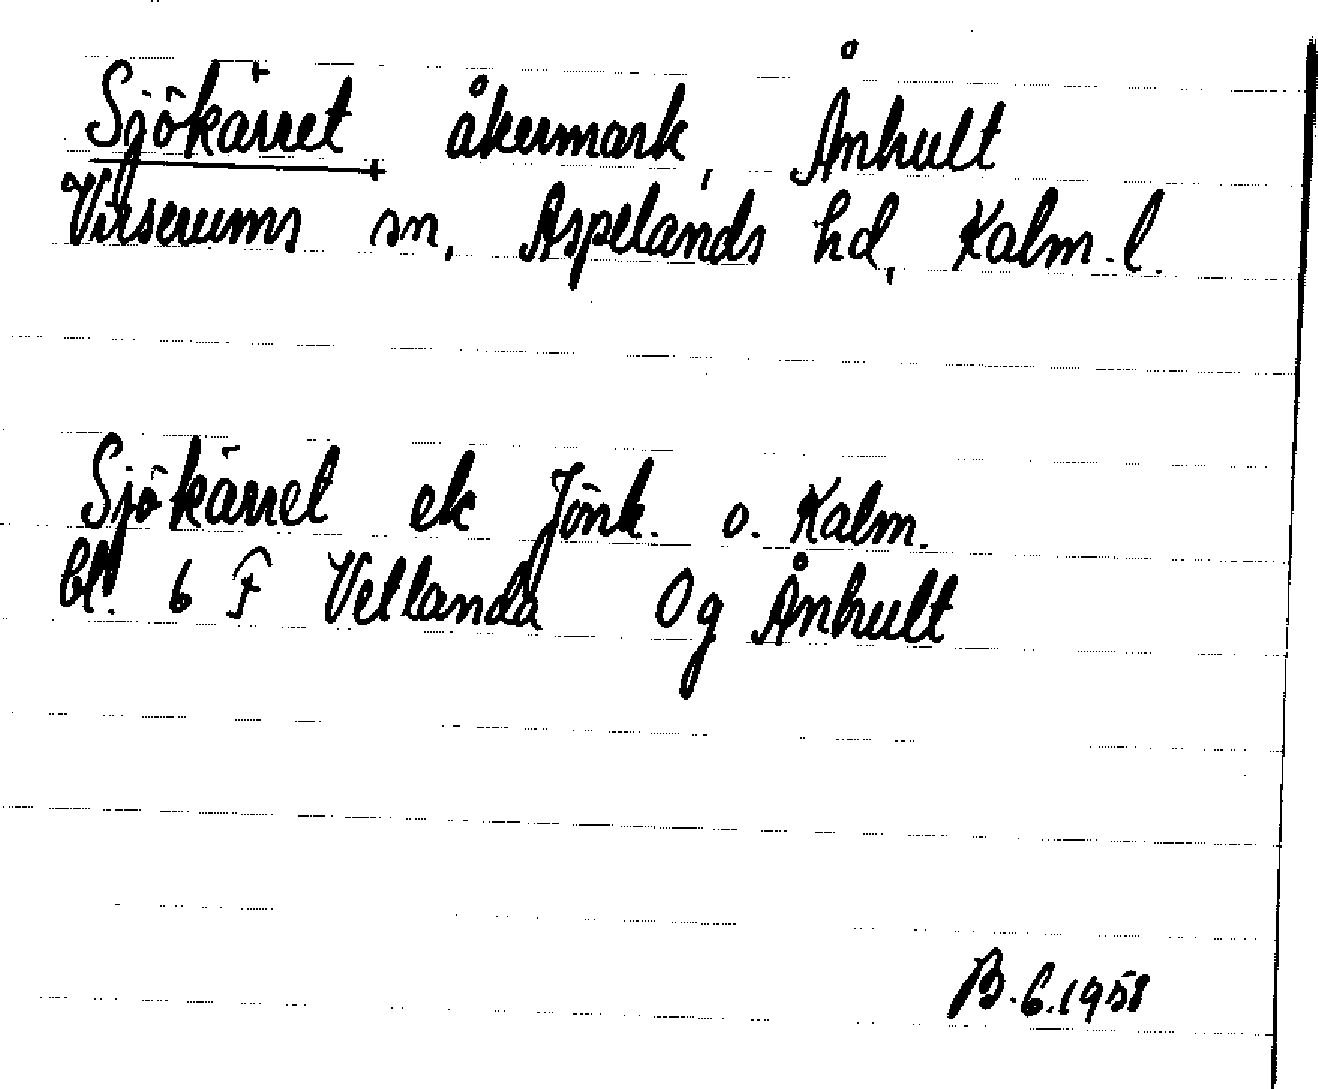 Sjökärret, åkermark, Ånhult
Virserums sn, Aspelands hd, Kalm. l.
Sjökärret ek Jönk. o. Kalm.
bl. 6 F Vetlanda 0 g Ånhult
B.6.1958